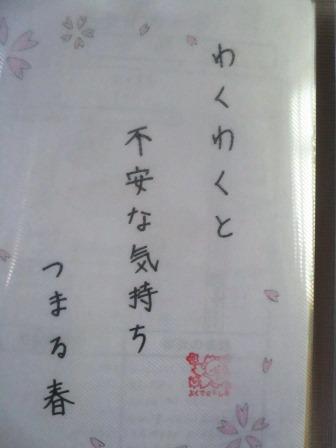 わくわくと
不安な気持ち
つまる春